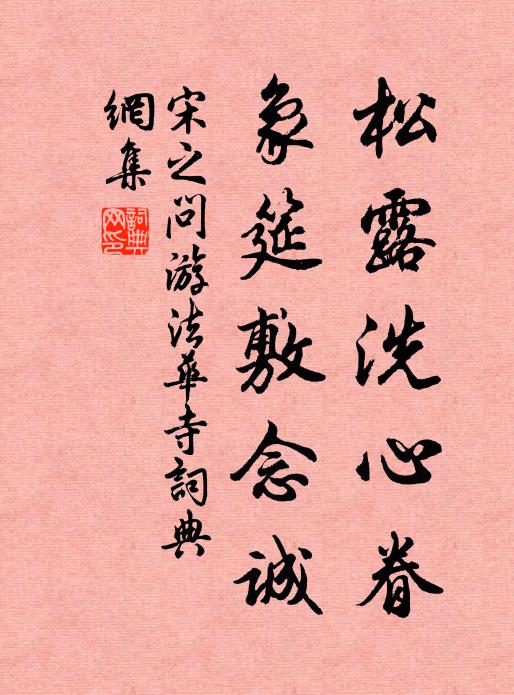 松露洗心眷
象筵敷念誠
宋之问游法華寺詞典
網集
詞典网印